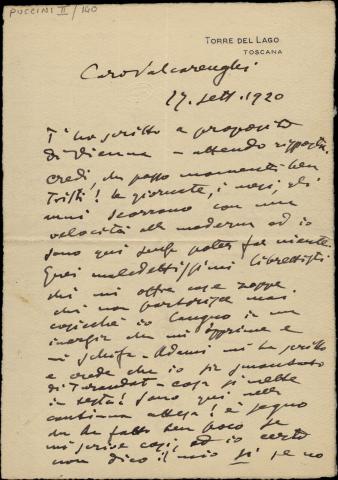 PUCCINI II / 140
TORRE DEL LAGO
TOSCANA
Caro Valcarenghi
17. sett. 1920
T'ho scritto a proposito
di Vienna – attendo risposta.
Credi, che passo momenti ben
tristi! le giornate, i mesi, gli
anni scorrono con una
velocità alla moderna ed io
sono qui senza poter far niente.
Quei maledettissimi librettisti
chi mi offre cose zoppe
chi non partorisce mai.
cosicchè io languo in un
inerzia che mi opprime e
mi schifa – Adami mi ha scritto
e crede che io sia smontato
di Turandot – cosa si mette
in testa! Sono qui nella
continua attesa! è segno
che ha fatto ben poco se
mi scrive così, ed io certo
non dico il mio sì se no